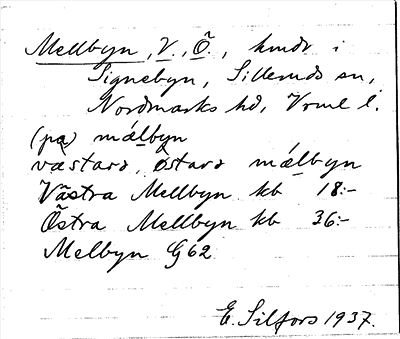 Mellbyn, V., Ö., hmdr i
Signebyn, Silleruds sn,
Nordmarks hd, Vrml l.
(pa) mälbyn
västarə, östarə mälbyn
Västra Mellbyn kb 18:-
Östra Mellbyn kb 36:-
Melbyn G62
E. Silfors 1937.